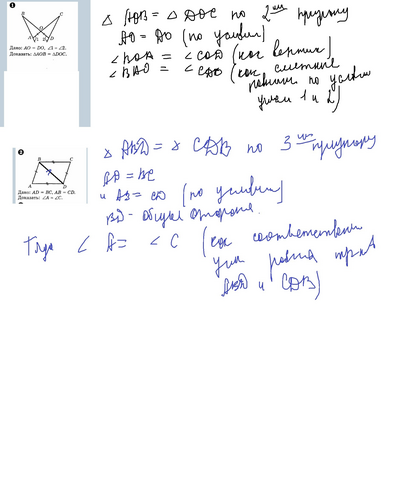 1
B C
O
1 2
A D
Дано: AO = DO, ∠1 = ∠2.
Доказать: ΔAOB = ΔDOC.
Δ AOB = Δ DOC по 2ому признаку
AO = DO (по условию)
∠BOA = ∠COD (как вертик)
∠BAO = ∠CDO (как смежные
равными по условию
углам 1 и 2)
2
B C
A D
Дано: AD = BC, AB = CD.
Доказать: ∠A = ∠C.
Δ ABD = Δ CDB по 3ому признаку
AD = BC
и AB = CD (по условию)
BD - общая сторона.
Тогда ∠ A = ∠ C (как соответствен
углы равных тр-ков
ABD и CDB)